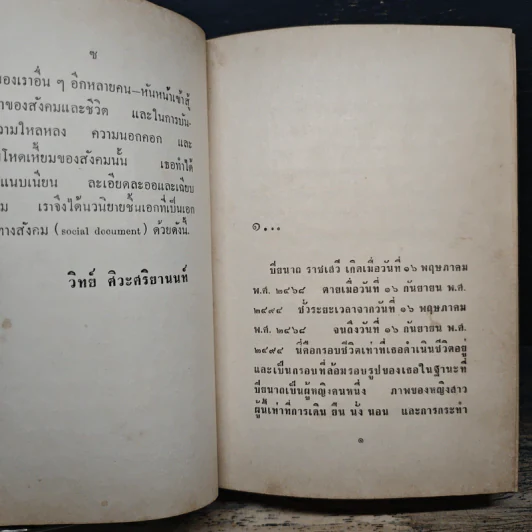 ซ
ของเราอื่น ๆ อีกหลายคน—หันหน้าเข้าสู้
ของสังคมและชีวิต และในการบัน-
ความใหลหลง ความนอกคอก และ
โหดเหี้ยมของสังคมนั้น เธอทำได้
แนบเนียน ละเอียดละออและเฉียบ
เราจึงได้นวนิยายชิ้นเอกที่เป็นเอก
ทางสังคม (social document) ด้วยดังนี้.
วิทย์ ศิวะศริยานนท์
๑...
ปิยนาถ ราชเสวี เกิดเมื่อวันที่ ๑๖ พฤษภาคม
พ.ศ. ๒๔๖๘ ตายเมื่อวันที่ ๑๖ กันยายน พ.ศ.
๒๔๙๔ ชั่วระยะเวลาจากวันที่ ๑๖ พฤษภาคม
พ.ศ. ๒๔๖๘ จนถึงวันที่ ๑๖ กันยายน พ.ศ.
๒๔๙๔ นี่คือกรอบชีวิตเท่าที่เธอดำเนินชีวิตอยู่
และเป็นกรอบที่ล้อมรอบรูปของเธอในฐานะที่
ปิยนาถเป็นผู้หญิงคนหนึ่ง ภาพของหญิงสาว
ผู้นี้เท่าที่การเดิน ยืน นั่ง นอน และการกระทำ
๑